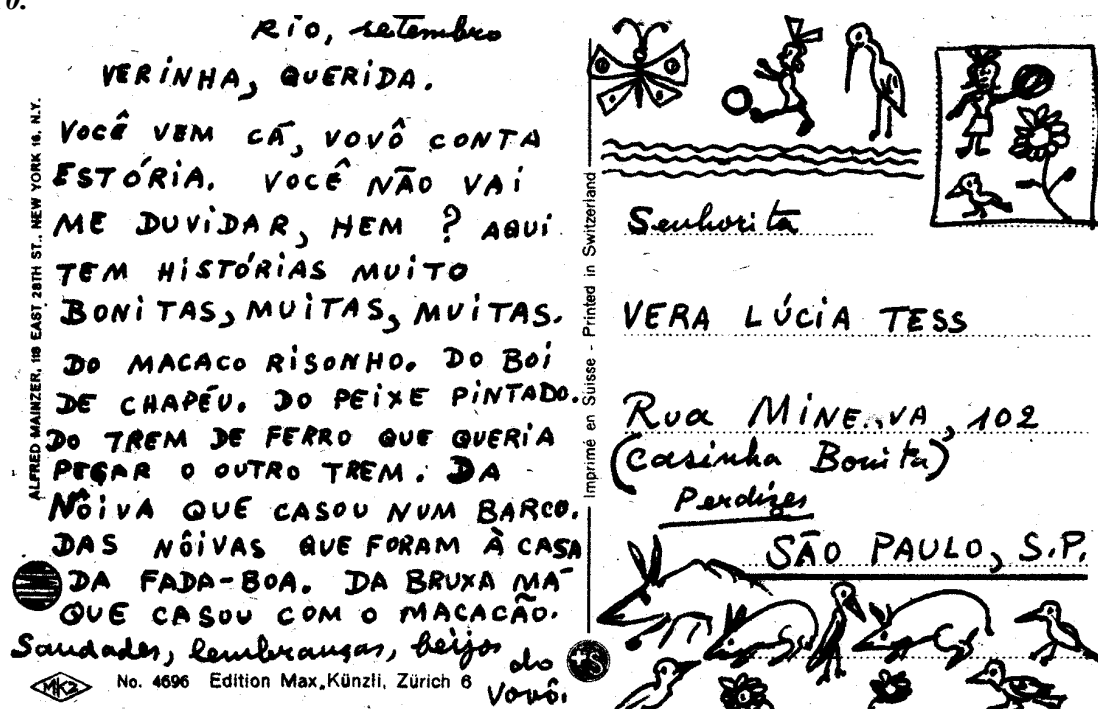 o.
RIO, setembro
VERINHA, QUERIDA.
VOCÊ VEM CÁ, VOVÔ CONTA
ESTÓRIA. VOCÊ NÃO VAI
ME DUVIDAR, HEM? AQUI
TEM HISTÓRIAS MUITO
BONITAS, MUITAS, MUITAS.
DO MACACO RISONHO. DO BOI
DE CHAPÉU. DO PEIXE PINTADO.
DO TREM DE FERRO QUE QUERIA
PEGAR O OUTRO TREM. DA
NÔIVA QUE CASOU NUM BARCO.
DAS NÔIVAS QUE FORAM À CASA
DA FADA-BOA. DA BRUXA MÁ
QUE CASOU COM O MACACÃO.
Saudades, lembranças, beijos
do
Vovô.
ALFRED MAINZER, 118 EAST 28TH ST., NEW YORK 16, N.Y.
MKZ
No. 4696 Edition Max Künzli, Zürich 6
Imprimé en Suisse - Printed in Switzerland
Senhorita
VERA LÚCIA TESS
Rua MINERVA, 102
(Casinha Bonita)
Perdizes
SÃO PAULO, S.P.